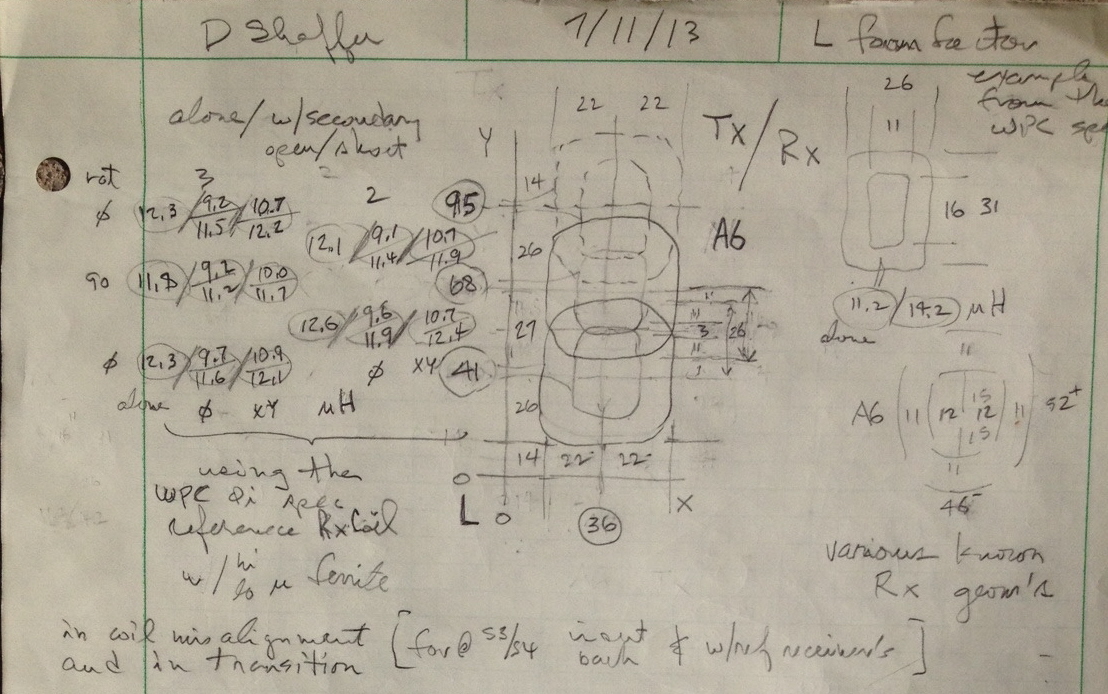 D Sheffer 7/11/13 L form factor
22 22 26 example
from the
alone / w/secondary Y Tx/Rx 11 WPC spec
open/short
rot 3 2 14
ø 12.3 / 9.2/11.5 / 10.7/12.2 95 16 31
12.1 / 9.1/11.4 / 10.7/11.9 26 A6
90 11.8 / 9.2/11.2 / 10.0/11.7 68
11.2 / 14.2 µH
12.6 / 9.6/11.9 / 10.7/12.4 27 11 3 26 alone
ø 12.3 / 9.7/11.6 / 10.9/12.1 ø XY 41 11 11
alone ø XY µH 26 A6 ( 11 ( 12 15 12 15 ) 11 ) 52+
14 22 22 11
using the 0 46
WPC Qi spec L 0 X
reference Rx Coil 36
w/ hi/lo µ ferrite various known
Rx geom's
in coil misalignment [for @ S3/S4 in out & w/ref receiver's]
and in transition back